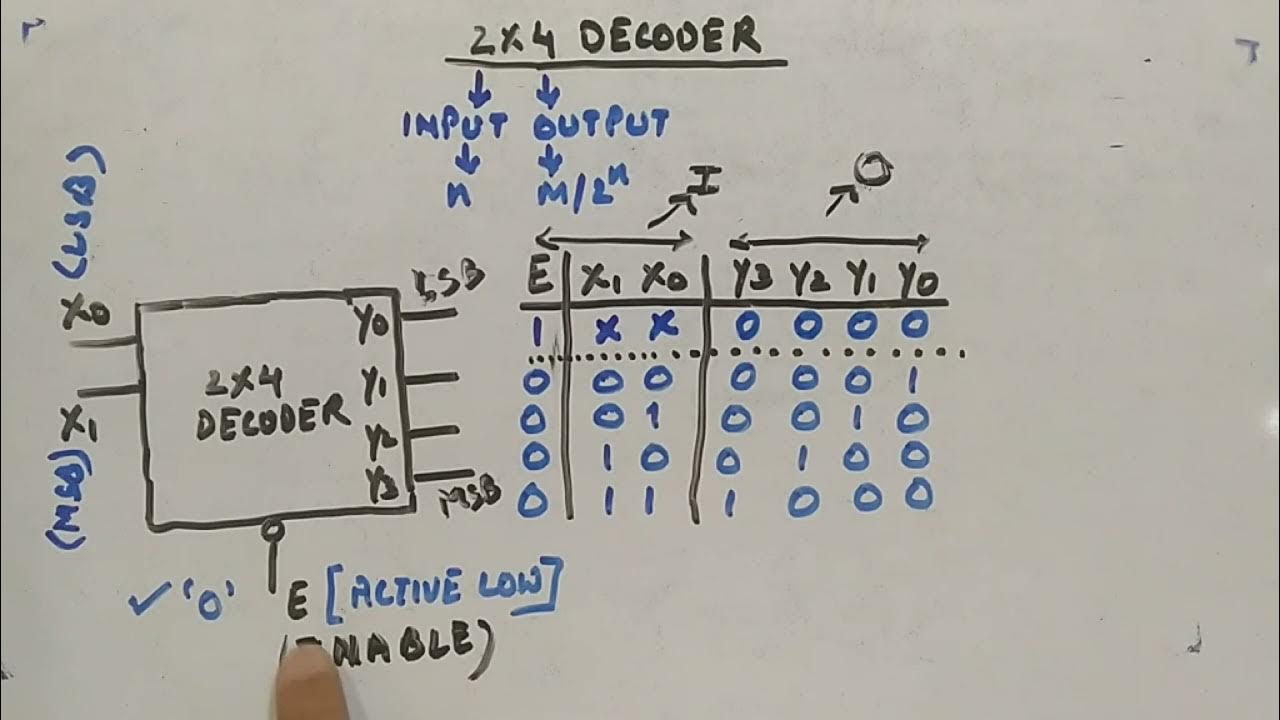 2X4 DECODER
INPUT OUTPUT
n M/2ⁿ
I O
E X1 X0 Y3 Y2 Y1 Y0
1 X X 0 0 0 0
0 0 0 0 0 0 1
0 0 1 0 0 1 0
0 1 0 0 1 0 0
0 1 1 1 0 0 0
(LSB)
X0
X1
(MSB)
2X4
DECODER
Y0 LSB
Y1
Y2
Y3 MSB
✓ '0' E [ACTIVE LOW]
(ENABLE)